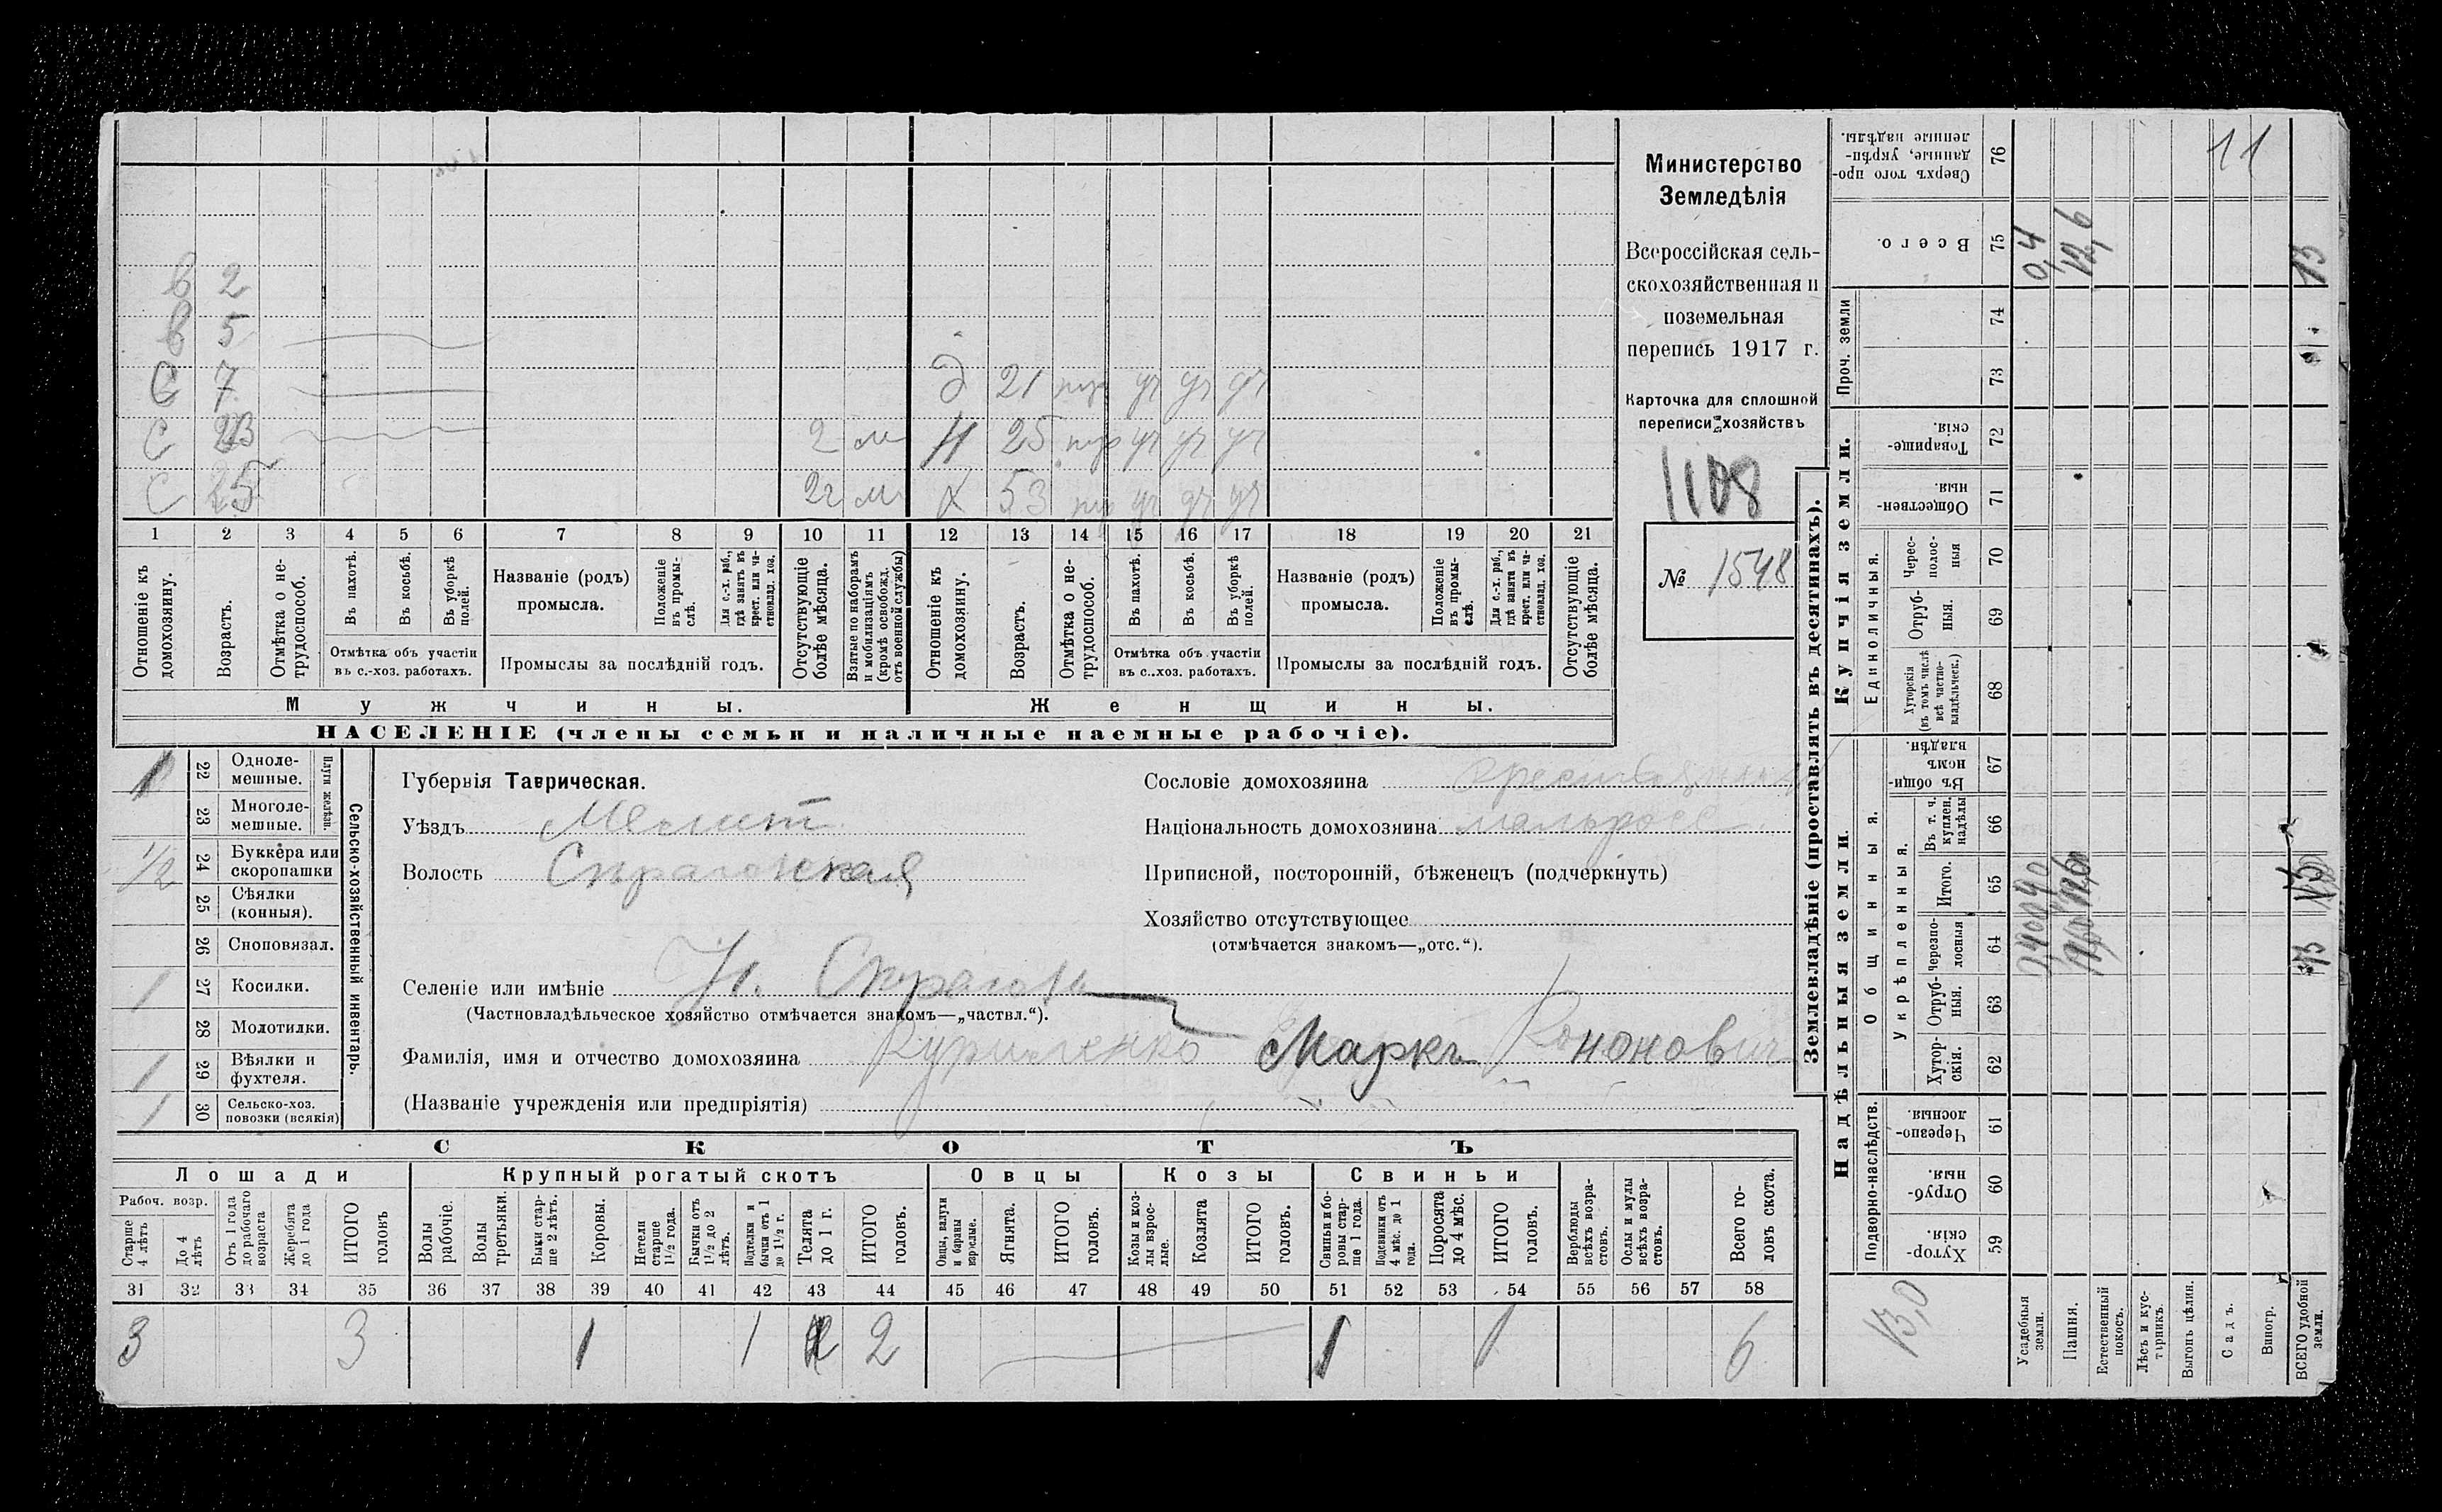 в 2
в 5
С 7
С 23 2 м Н 25 нтр уч уч уч
С 25 2г м Х 53 нтр уч уч уч
Д 21 нтр уч уч уч
1 2 3 4 5 6 7 8 9 10 11 12 13 14 15 16 17 18 19 20 21
Отношеніе къ домохозяину.
Возрастъ.
Отмѣтка о нетрудоспособ.
Въ пахотѣ.
Въ косьбѣ.
Въ уборкѣ полей.
Отмѣтка объ участіи въ с.-хоз. работахъ.
Названіе (родъ) промысла.
Положеніе въ промыслѣ.
Для с.-х. раб., гдѣ занятъ въ крест. или частновлад. хоз.
Промыслы за послѣдній годъ.
Отсутствующіе болѣе мѣсяца.
Взятые по наборамъ и мобилизаціямъ (кромѣ освобожд. отъ военной службы)
Отношеніе къ домохозяину.
Возрастъ.
Отмѣтка о нетрудоспособ.
Въ пахотѣ.
Въ косьбѣ.
Въ уборкѣ полей.
Отмѣтка объ участіи въ с.-хоз. работахъ.
Названіе (родъ) промысла.
Положеніе въ промыслѣ.
Для с.-х. раб., гдѣ занята въ крест. или частновлад. хоз.
Промыслы за послѣдній годъ.
Отсутствующіе болѣе мѣсяца.
Мужчины. Женщины.
НАСЕЛЕНІЕ (члены семьи и наличные наемные рабочіе).
Министерство
Земледѣлія
Всероссійская сель-
скохозяйственная и
поземельная
перепись 1917 г.
Карточка для сплошной
переписи хозяйствъ
1108
№ 1548
Сельско-хозяйственный инвентарь.
Плуги желѣзн.
1 22 Однолемешные.
23 Многолемешные.
1/2 24 Буккера или скоропашки
25 Сѣялки (конныя).
26 Сноповязал.
1 27 Косилки.
28 Молотилки.
1 29 Вѣялки и фухтеля.
1 30 Сельско-хоз. повозки (всякія)
Губернія Таврическая.
Уѣздъ Мелит
Волость
Селеніе или имѣніе
(Частновладѣльческое хозяйство отмѣчается знакомъ—„частвл.“).
Фамилія, имя и отчество домохозяина Куриленко Маркъ Кононович
(Названіе учрежденія или предпріятія)
Сословіе домохозяина
Національность домохозяина малоросс
Приписной, посторонній, бѣженецъ (подчеркнуть)
Хозяйство отсутствующее
(отмѣчается знакомъ—„отс.“).
СКОТЪ
Лошади Крупный рогатый скотъ Овцы Козы Свиньи
Рабоч. возр.
Старше 4 лѣтъ
До 4 лѣтъ
Отъ 1 года до рабочаго возраста
Жеребята до 1 года
ИТОГО головъ
Волы рабочіе.
Волы третьяки.
Быки старше 2 лѣтъ.
Коровы.
Нетели старше 1½ года.
Бычки отъ 1½ до 2 лѣтъ.
Подтелки и бычки отъ 1 до 1½ г.
Телята до 1 г.
ИТОГО головъ.
Овцы, валухи и бараны взрослые.
Ягнята.
ИТОГО головъ.
Козы и козлы взрослые.
Козлята
ИТОГО головъ.
Свиньи и боровы старше 1 года.
Подсвинки отъ 4 мѣс. до 1 года.
Поросята до 4 мѣс.
ИТОГО головъ.
Верблюды всѣхъ возрастовъ.
Ослы и мулы всѣхъ возрастовъ.
Всего головъ скота.
31 32 33 34 35 36 37 38 39 40 41 42 43 44 45 46 47 48 49 50 51 52 53 54 55 56 57 58
3 3 1 1 2 1 1 6
Землевладѣніе (проставлять въ десятинахъ).
Купчія земли.
Надѣльныя земли.
Сверхъ того проданные, укрѣпленные надѣлы. 76 11
Всего. 75 0,4 12,6 13
Проч. земли 74 73
Товарищескія. 72
Общественныя. 71
Единоличныя.
Чересполосныя 70
Отрубныя. 69
Хуторскія (въ томъ числѣ всѣ частновладѣльческ.) 68
Общинныя.
Въ общинномъ владѣн. 67
Укрѣпленныя.
Въ т. ч. куплен. надѣлы 66
Итого. 65 0,40 12,60 13
Черезполосныя 64 0,40 12,60 13
Отрубныя. 63
Хуторскія. 62
Подворно-наслѣдств.
Черезполосныя. 61
Отрубныя. 60
Хуторскія. 59
13,0
Усадебныя земли.
Пашня.
Естественный покосъ.
Лѣсъ и кустарникъ.
Выгонъ цѣлин.
Садъ.
Виногр.
ВСЕГО удобной земли.